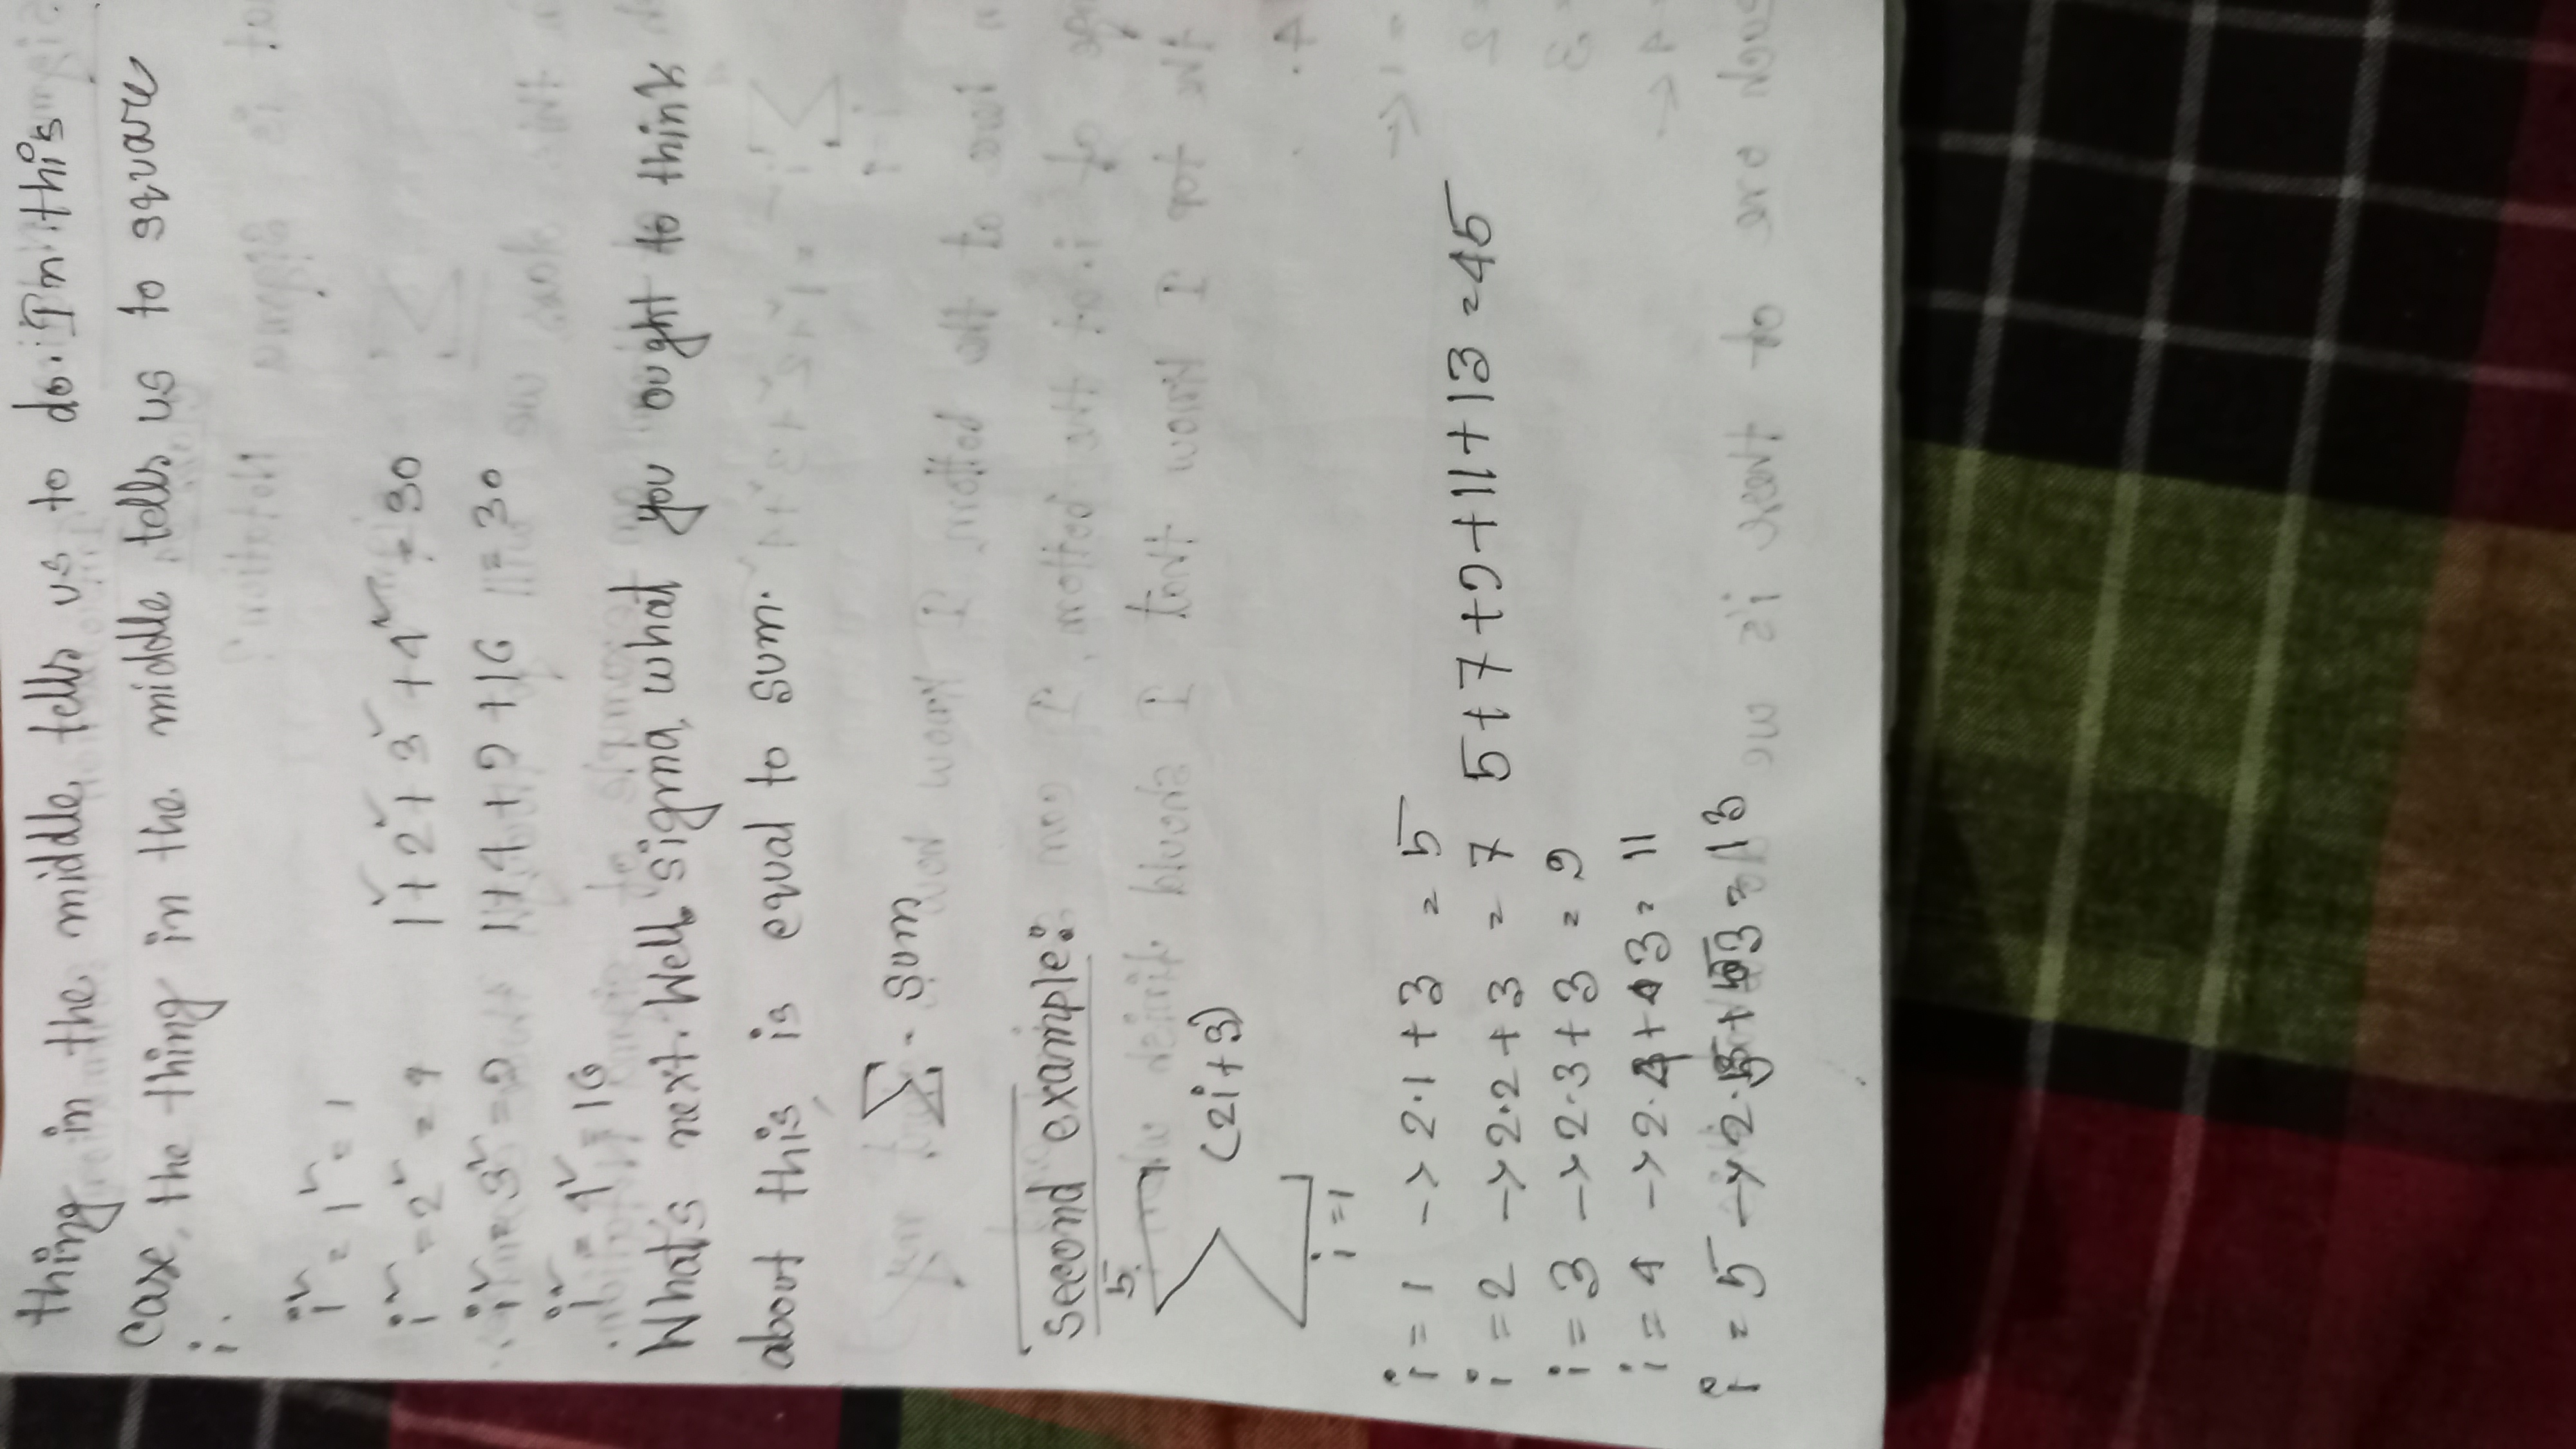 thing in the middle tells us to do. In this
case, the thing in the middle tells us to square
i.
i² = 1² = 1
i² = 2² = 4    1² + 2² + 3² + 4² = 30
i² = 3² = 9    1 + 4 + 9 + 16 = 30
i² = 4² = 16
What's next. Well sigma, what you ought to think
about this, is equal to sum.
Σ - sum
second example:
5
Σ (2i+3)
i=1
i = 1 -> 2·1 + 3 = 5
i = 2 -> 2·2 + 3 = 7    5+7+9+11+13 = 45
i = 3 -> 2·3 + 3 = 9
i = 4 -> 2·4 + 3 = 11
i = 5 -> 2·5 + 3 = 13